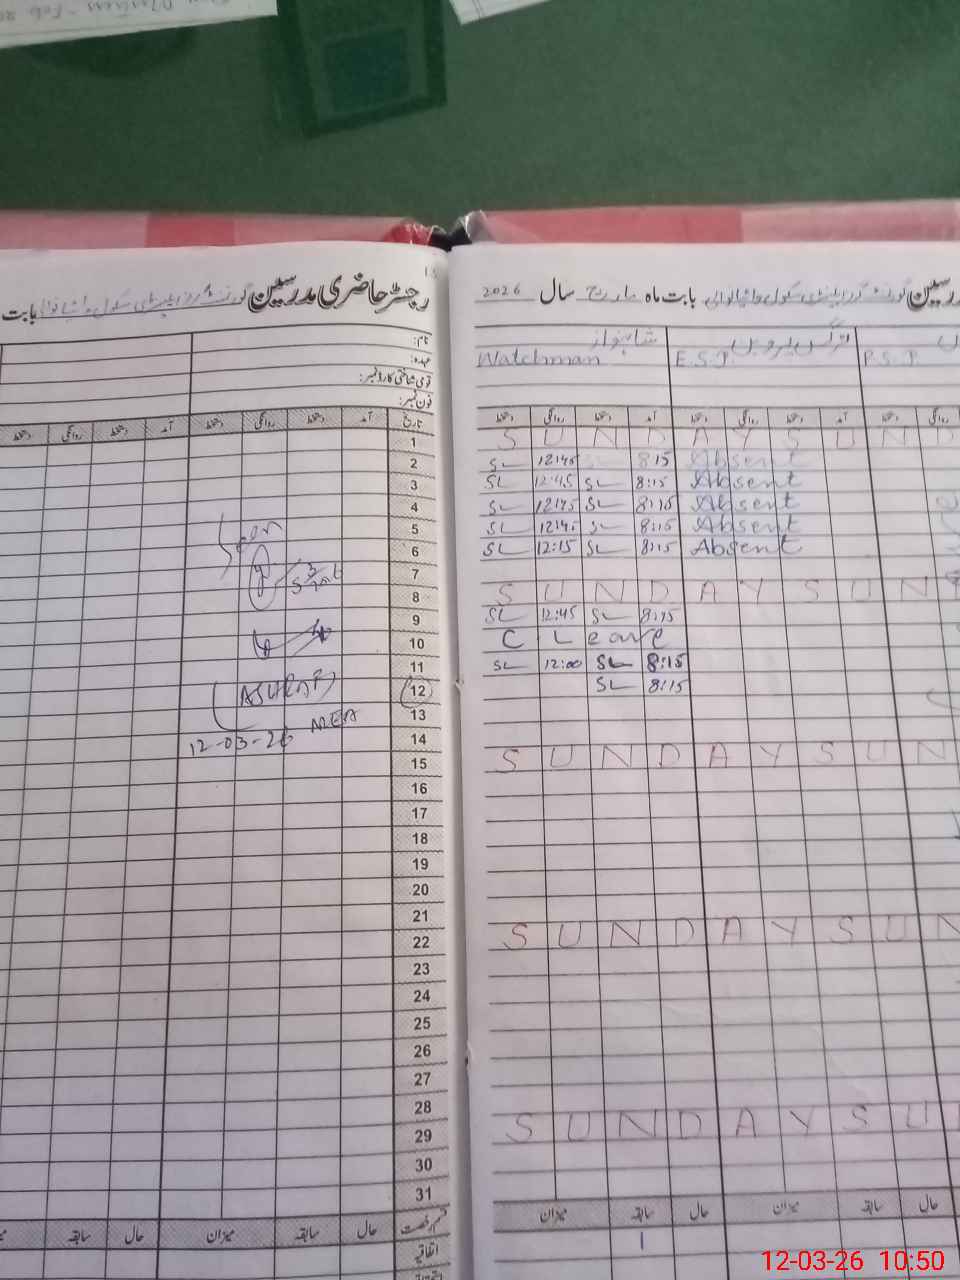 رجسٹر حاضری مدرسین گورنمنٹ گرلز ایلیمنٹری سکول
بابت
نام:
عہدہ:
قومی شناختی کارڈ نمبر:
فون نمبر:
تاریخ آمد دستخط روانگی دستخط آمد دستخط روانگی دستخط
1
2
3
4
5
6
7
8
9
10
11
12
13
14
15
16
17
18
19
20
21
22
23
24
25
26
27
28
29
30
31
Seen
(ASHRAF)
AEO
12-03-26
قسم رخصت حال سابقہ میزان حال سابقہ
اتفاقیہ
مدرسین گورنمنٹ گرلز ایلیمنٹری سکول بابت ماہ مارچ سال 2026
نرگس پروین شاہنواز
Watchman E.S.T. P.S.T.
روانگی دستخط آمد دستخط روانگی دستخط آمد دستخط روانگی دستخط
S U N D A Y S U N D
SL 12:45 SL 8:15 Absent
SL 12:45 SL 8:15 Absent
SL 12:45 SL 8:15 Absent
SL 12:45 SL 8:15 Absent
SL 12:15 SL 8:15 Absent
S U N D A Y S U N
SL 12:45 SL 8:15
C Leave
SL 12:00 SL 8:15
SL 8:15
S U N D A Y S U N
S U N D A Y S U N
S U N D A Y S U
حال سابقہ میزان حال سابقہ میزان
1
12-03-26 10:50